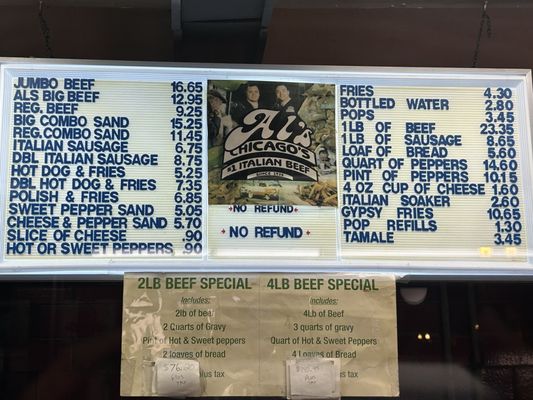 JUMBO BEEF 16.65
ALS BIG BEEF 12.95
REG. BEEF 9.25
BIG COMBO SAND 15.25
REG. COMBO SAND 11.45
ITALIAN SAUSAGE 6.75
DBL ITALIAN SAUSAGE 8.75
HOT DOG & FRIES 5.25
DBL HOT DOG & FRIES 7.35
POLISH & FRIES 6.85
SWEET PEPPER SAND 5.05
CHEESE & PEPPER SAND 5.70
SLICE OF CHEESE .90
HOT OR SWEET PEPPERS .90
Al's
CHICAGO'S
#1 ITALIAN BEEF
SINCE 1938
NO REFUND
NO REFUND
FRIES 4.30
BOTTLED WATER 2.80
POPS 3.45
1LB OF BEEF 23.35
1LB OF SAUSAGE 8.65
LOAF OF BREAD 5.60
QUART OF PEPPERS 14.60
PINT OF PEPPERS 10.15
4 OZ CUP OF CHEESE 1.60
ITALIAN SOAKER 2.60
GYPSY FRIES 10.65
POP REFILLS 1.30
TAMALE 3.45
2LB BEEF SPECIAL
Includes:
2lb of beef
2 Quarts of Gravy
Pint of Hot & Sweet peppers
2 loaves of Bread
plus tax
4LB BEEF SPECIAL
Includes:
4Lb of Beef
3 quarts of gravy
Quart of Hot & Sweet Peppers
4 Loaves of Bread
plus tax